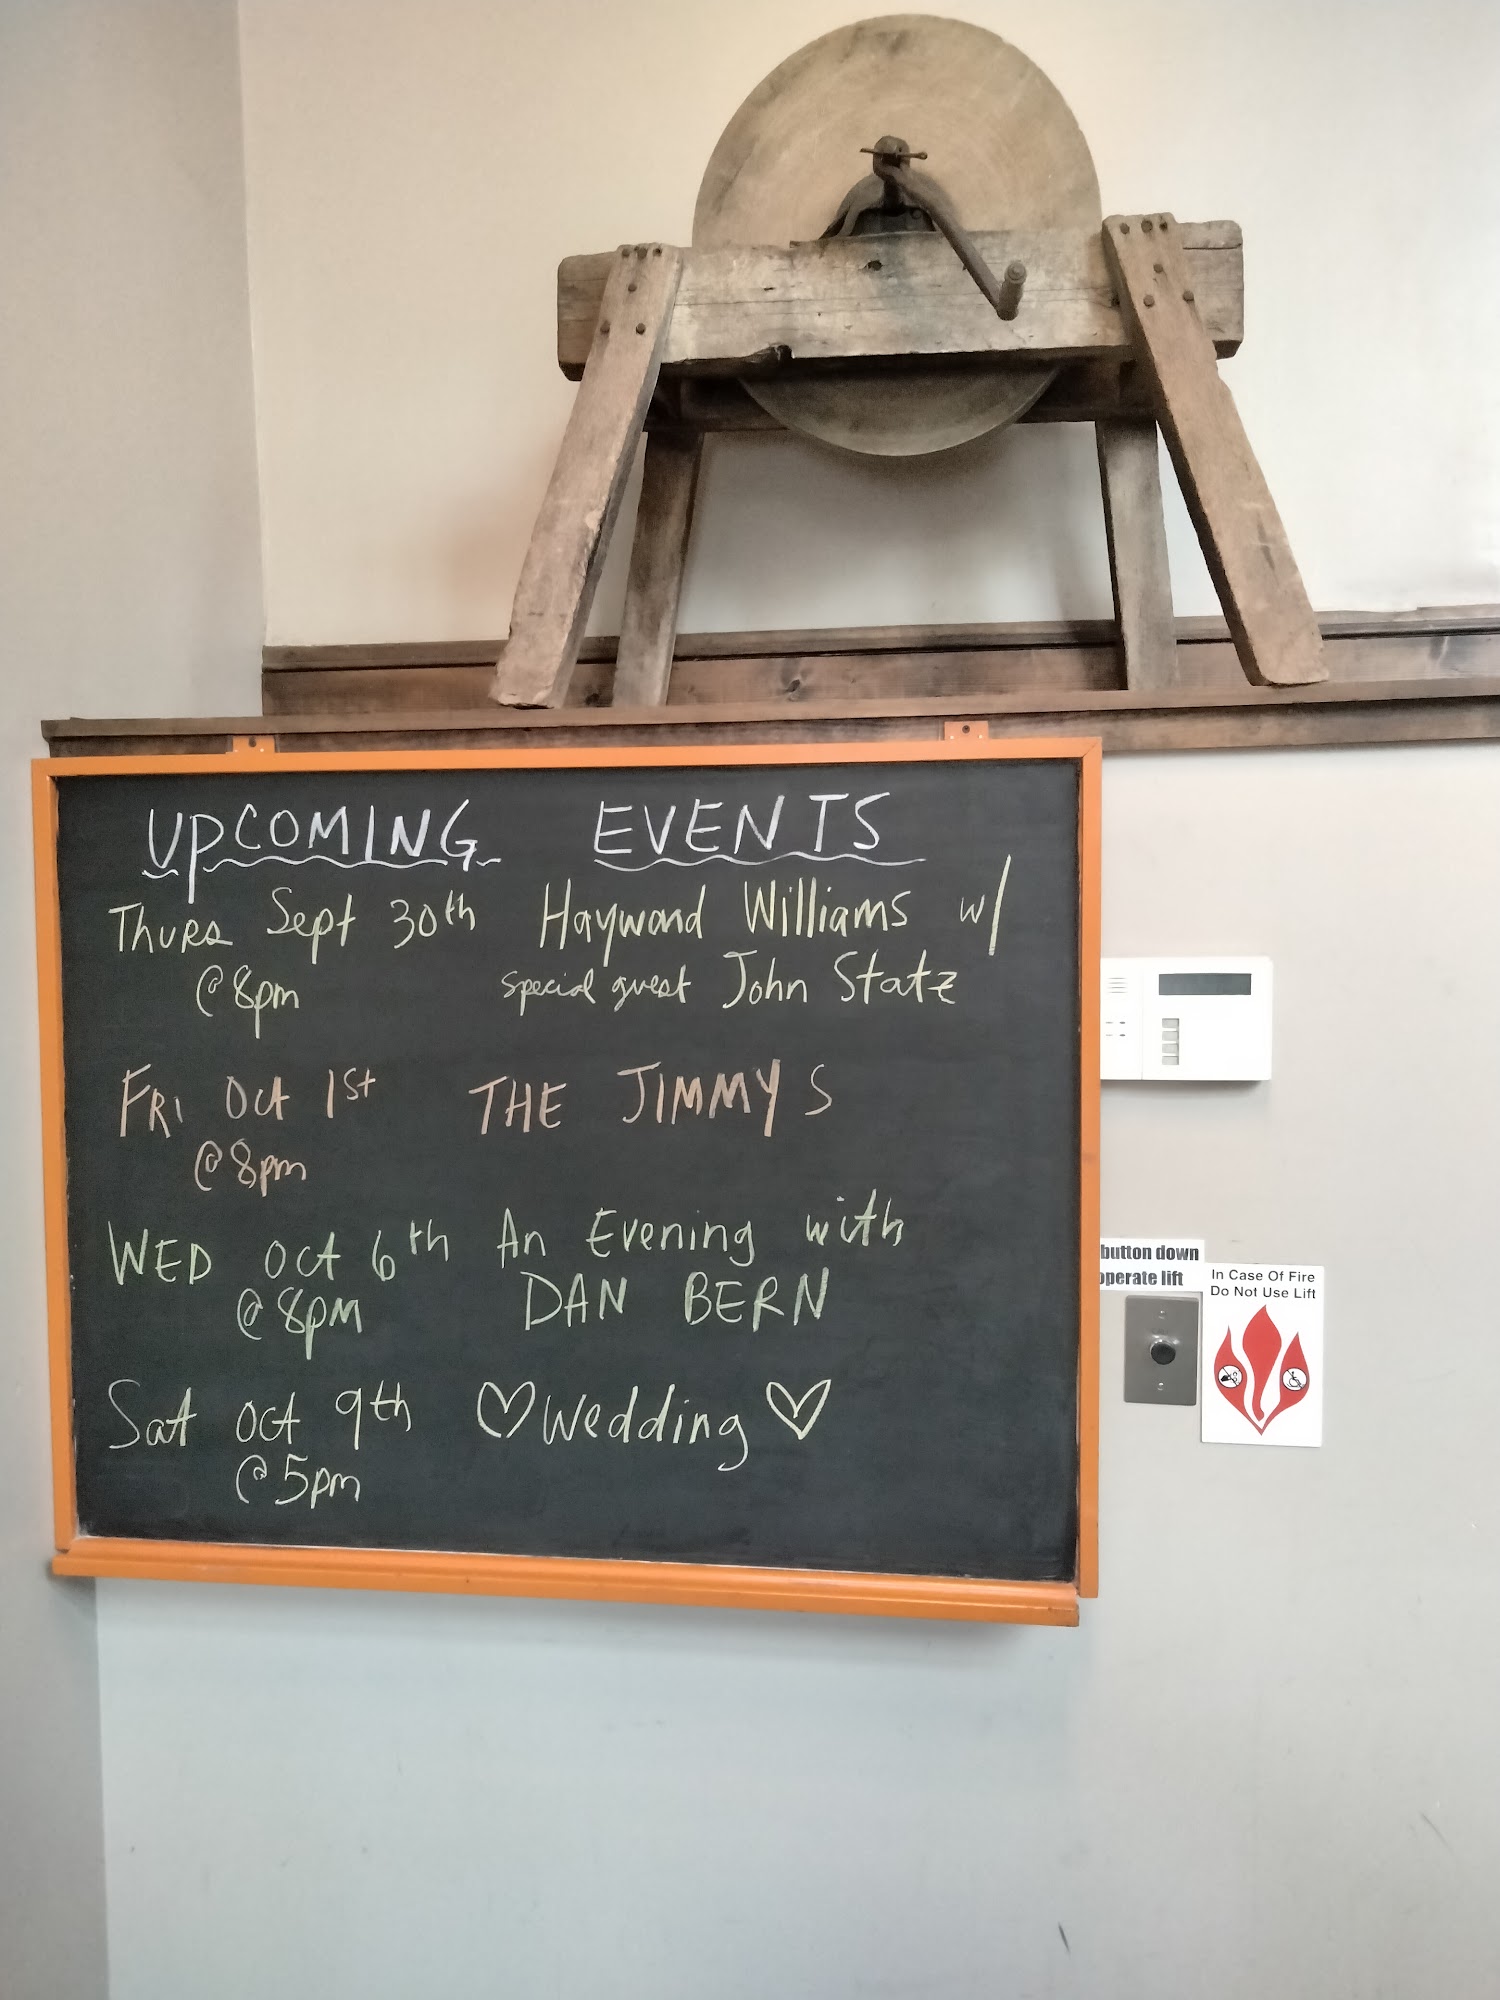 UPCOMING EVENTS
THURS Sept 30th Hayward Williams w/
@8pm special guest John Statz
FRI Oct 1st THE JIMMYS
@8pm
WED Oct 6th An Evening with
@8pm DAN BERN
Sat Oct 9th ♡ Wedding ♡
@5pm
button down
operate lift
In Case Of Fire
Do Not Use Lift